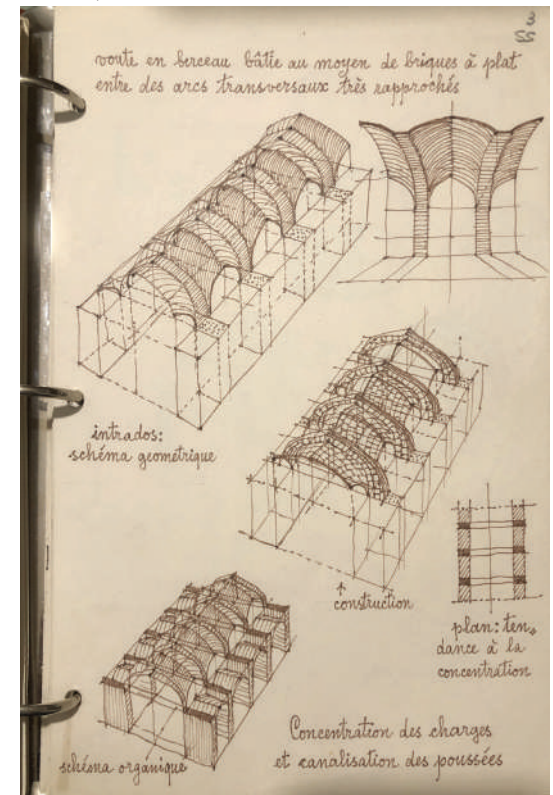 3
55
voute en berceau bâtie au moyen de briques à plat
entre des arcs transversaux très rapprochés
intrados:
schéma geométrique
construction
plan: ten-
dance à la
concentration
schéma orgánique
Concentration des charges
et canalisation des poussées